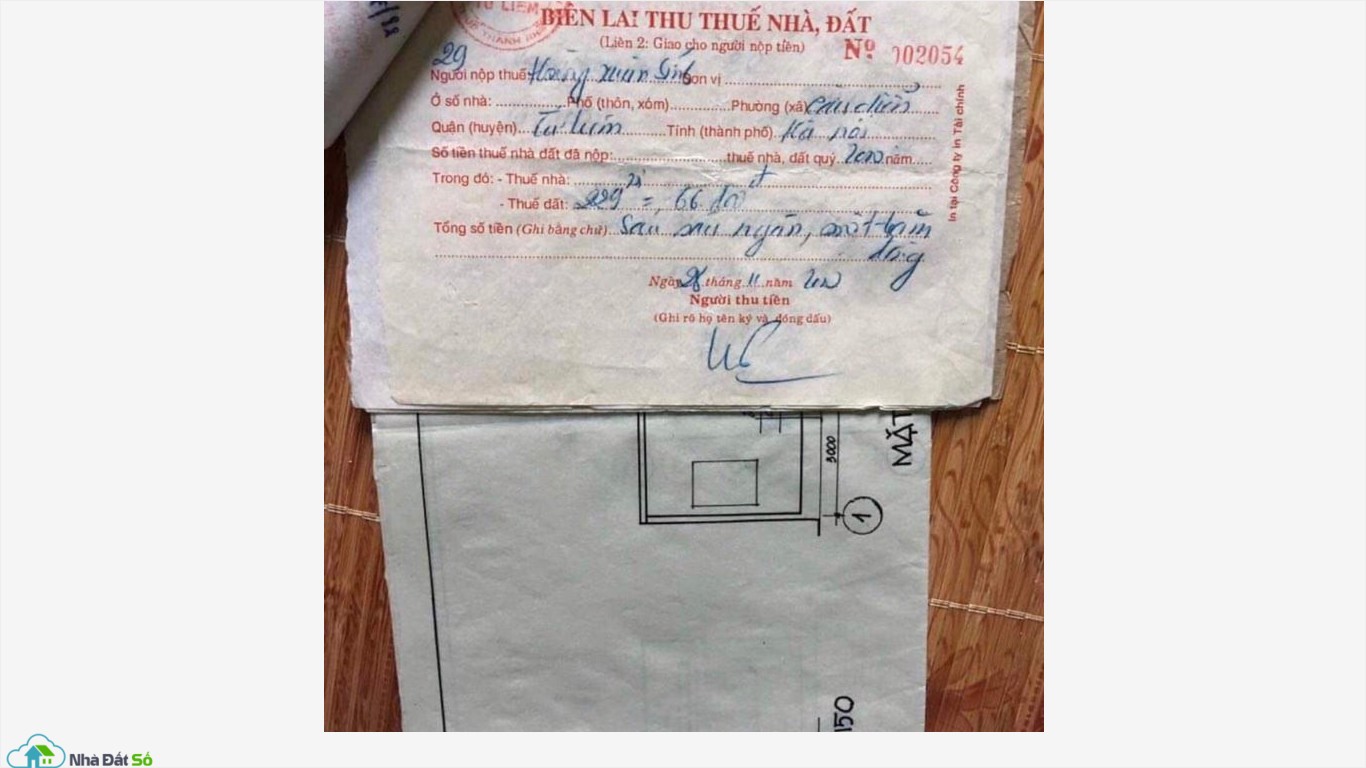 TỪ LIÊM
BIÊN LAI THU THUẾ NHÀ, ĐẤT
(Liên 2: Giao cho người nộp tiền)
Nº 002054
29
Người nộp thuế: Hoàng Xuân Đơn vị
Ở số nhà: Phố (thôn, xóm) Phường (xã) Cầu diễn
Quận (huyện) Từ Liêm Tỉnh (thành phố) Hà nội
Số tiền thuế nhà đất đã nộp: thuế nhà, đất quý 2000 năm
Trong đó: - Thuế nhà:
- Thuế đất: 229 =
Tổng số tiền (Ghi bằng chữ) Sáu sáu ngàn, một trăm
đồng
Ngày 28 tháng 11 năm 2000
Người thu tiền
(Ghi rõ họ tên ký và đóng dấu)
In tại Công ty in Tài chính
3000
1
MẶT
150
Nhà Đất Số